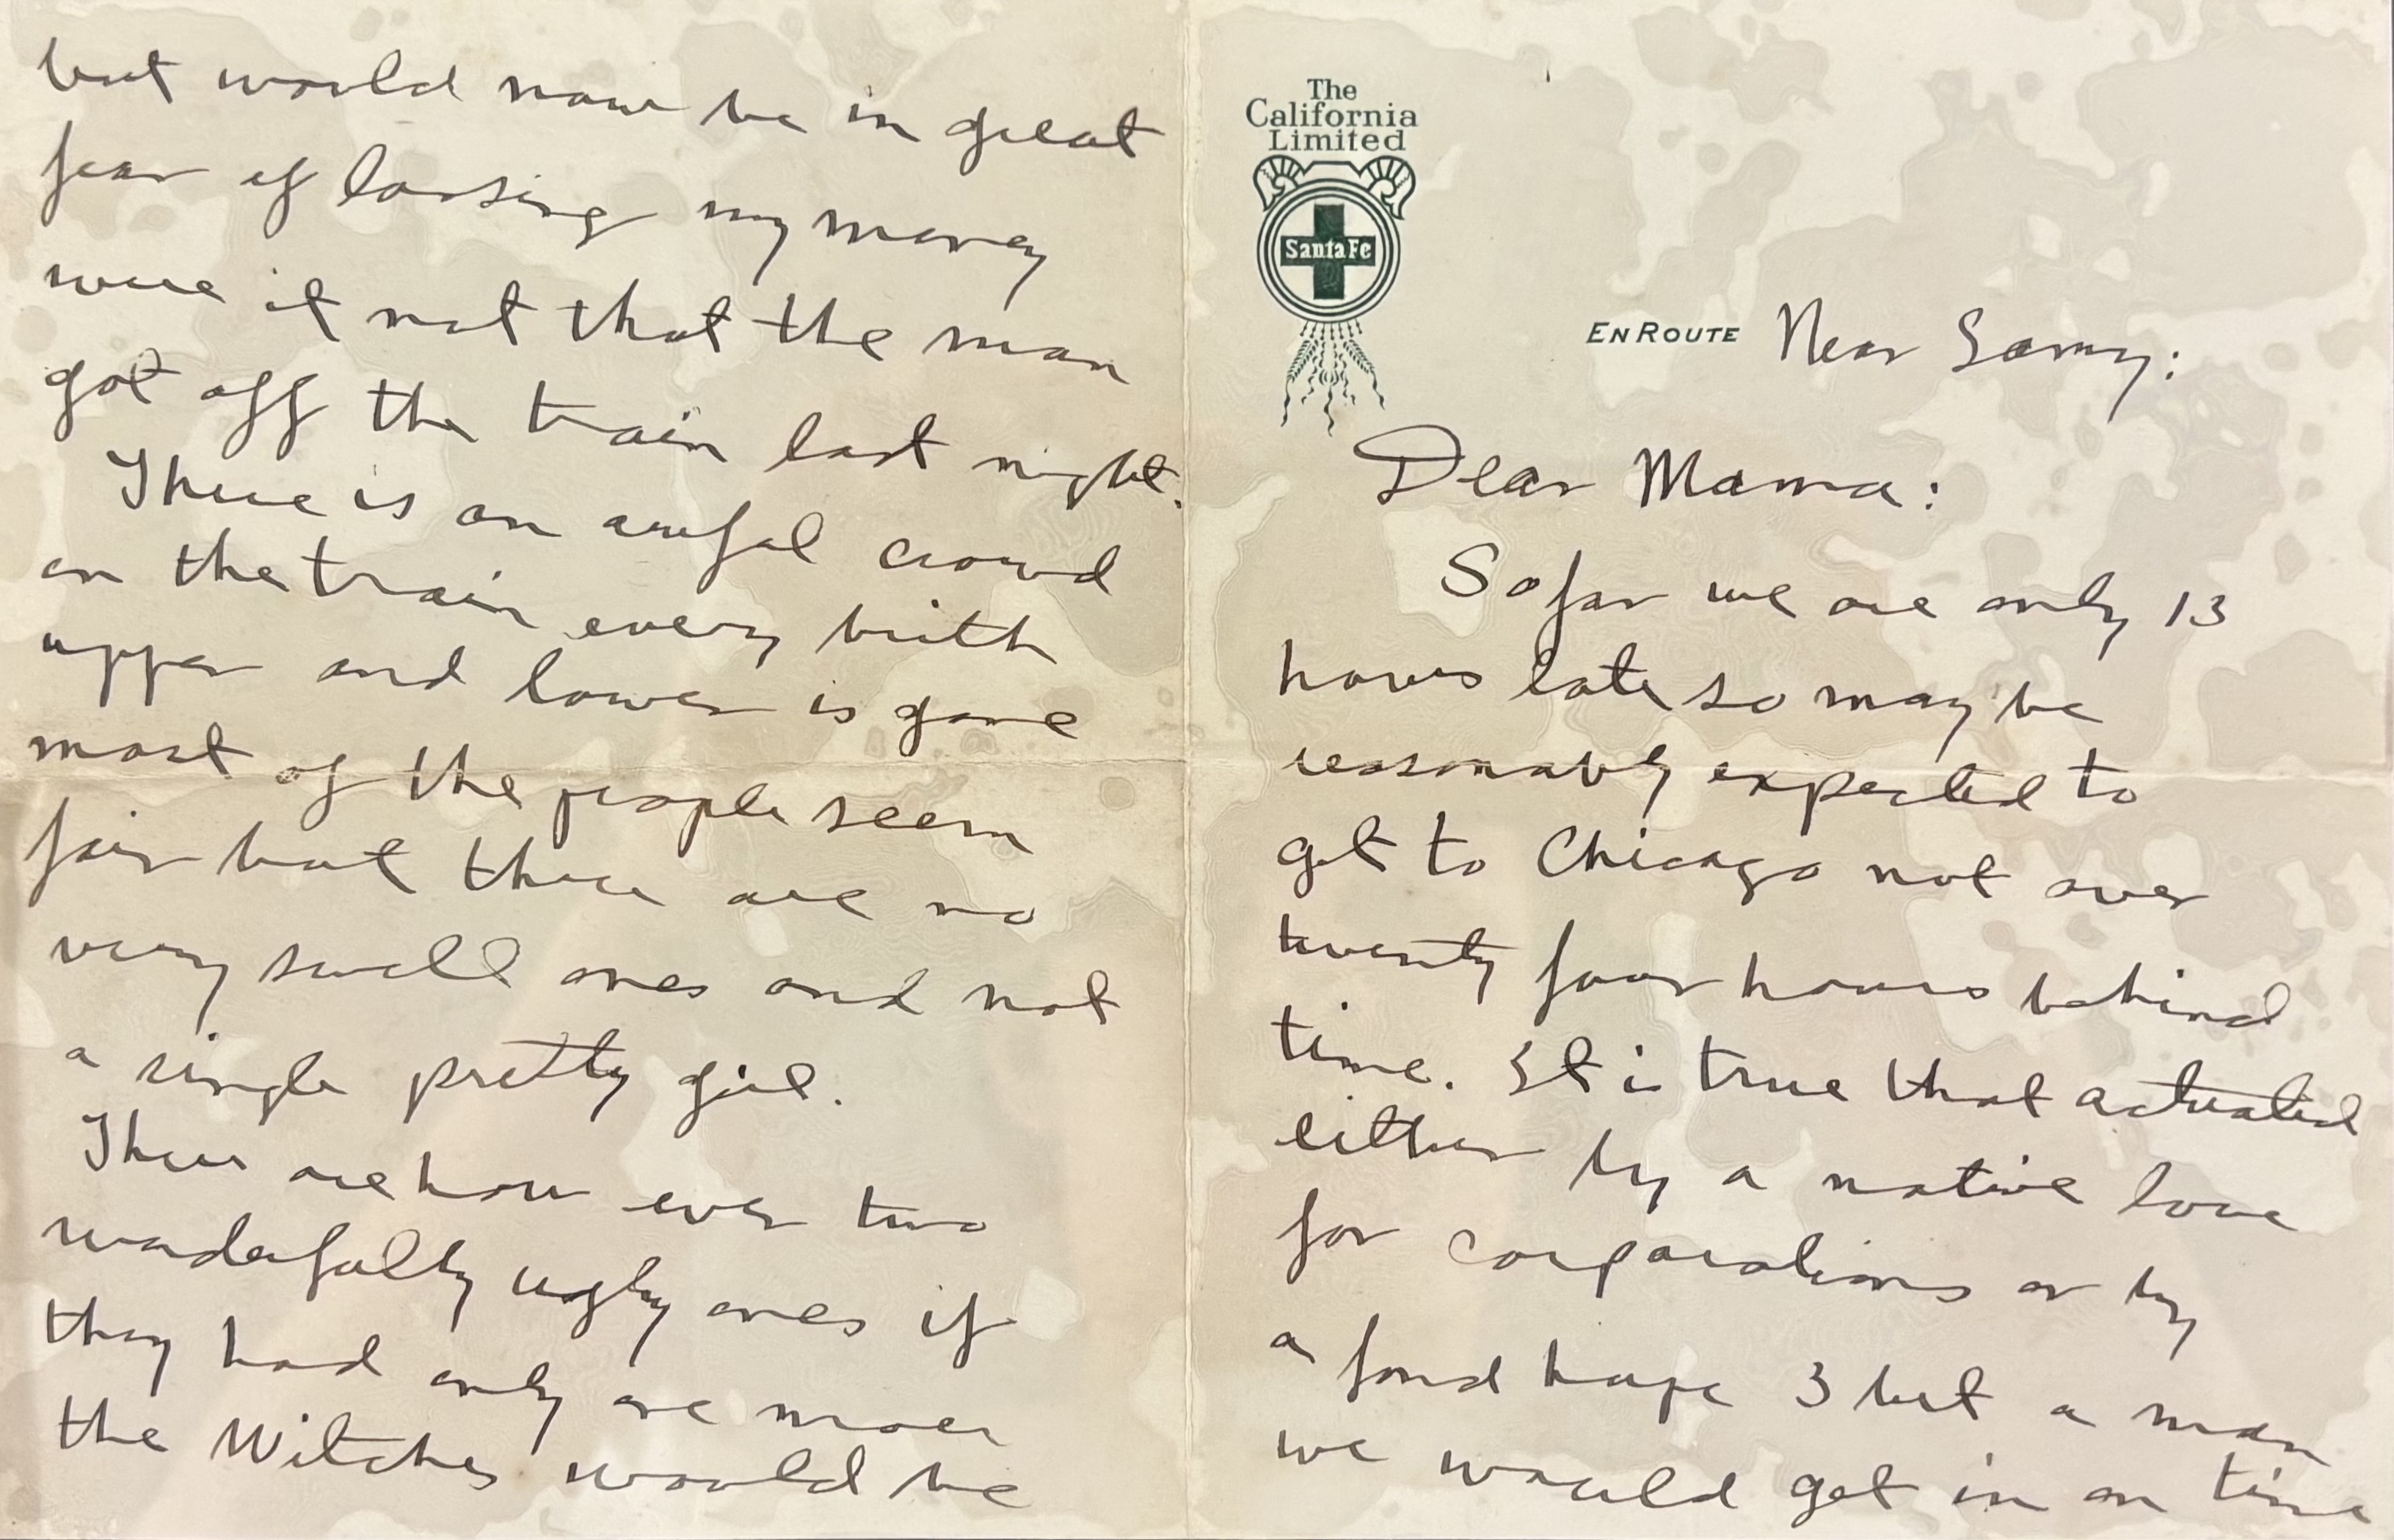 The
California
Limited
Santa Fe
EN ROUTE Near Lamy:
Dear Mama:
So far we are only 13
hours late so may be
reasonably expected to
get to Chicago not over
twenty four hours behind
time. It is true that actuated
either by a native love
for corporations or by
a fond hope I bet a man
we would get in on time
but would now be in great
fear of loosing my money
were it not that the man
got off the train last night.
There is an awful crowd
on the train every birth
upper and lower is gone
most of the people seem
fair but there are no
very swell ones and not
a single pretty girl.
There are how ever two
wonderfully ugly ones if
they had only one moer
the Witches would be